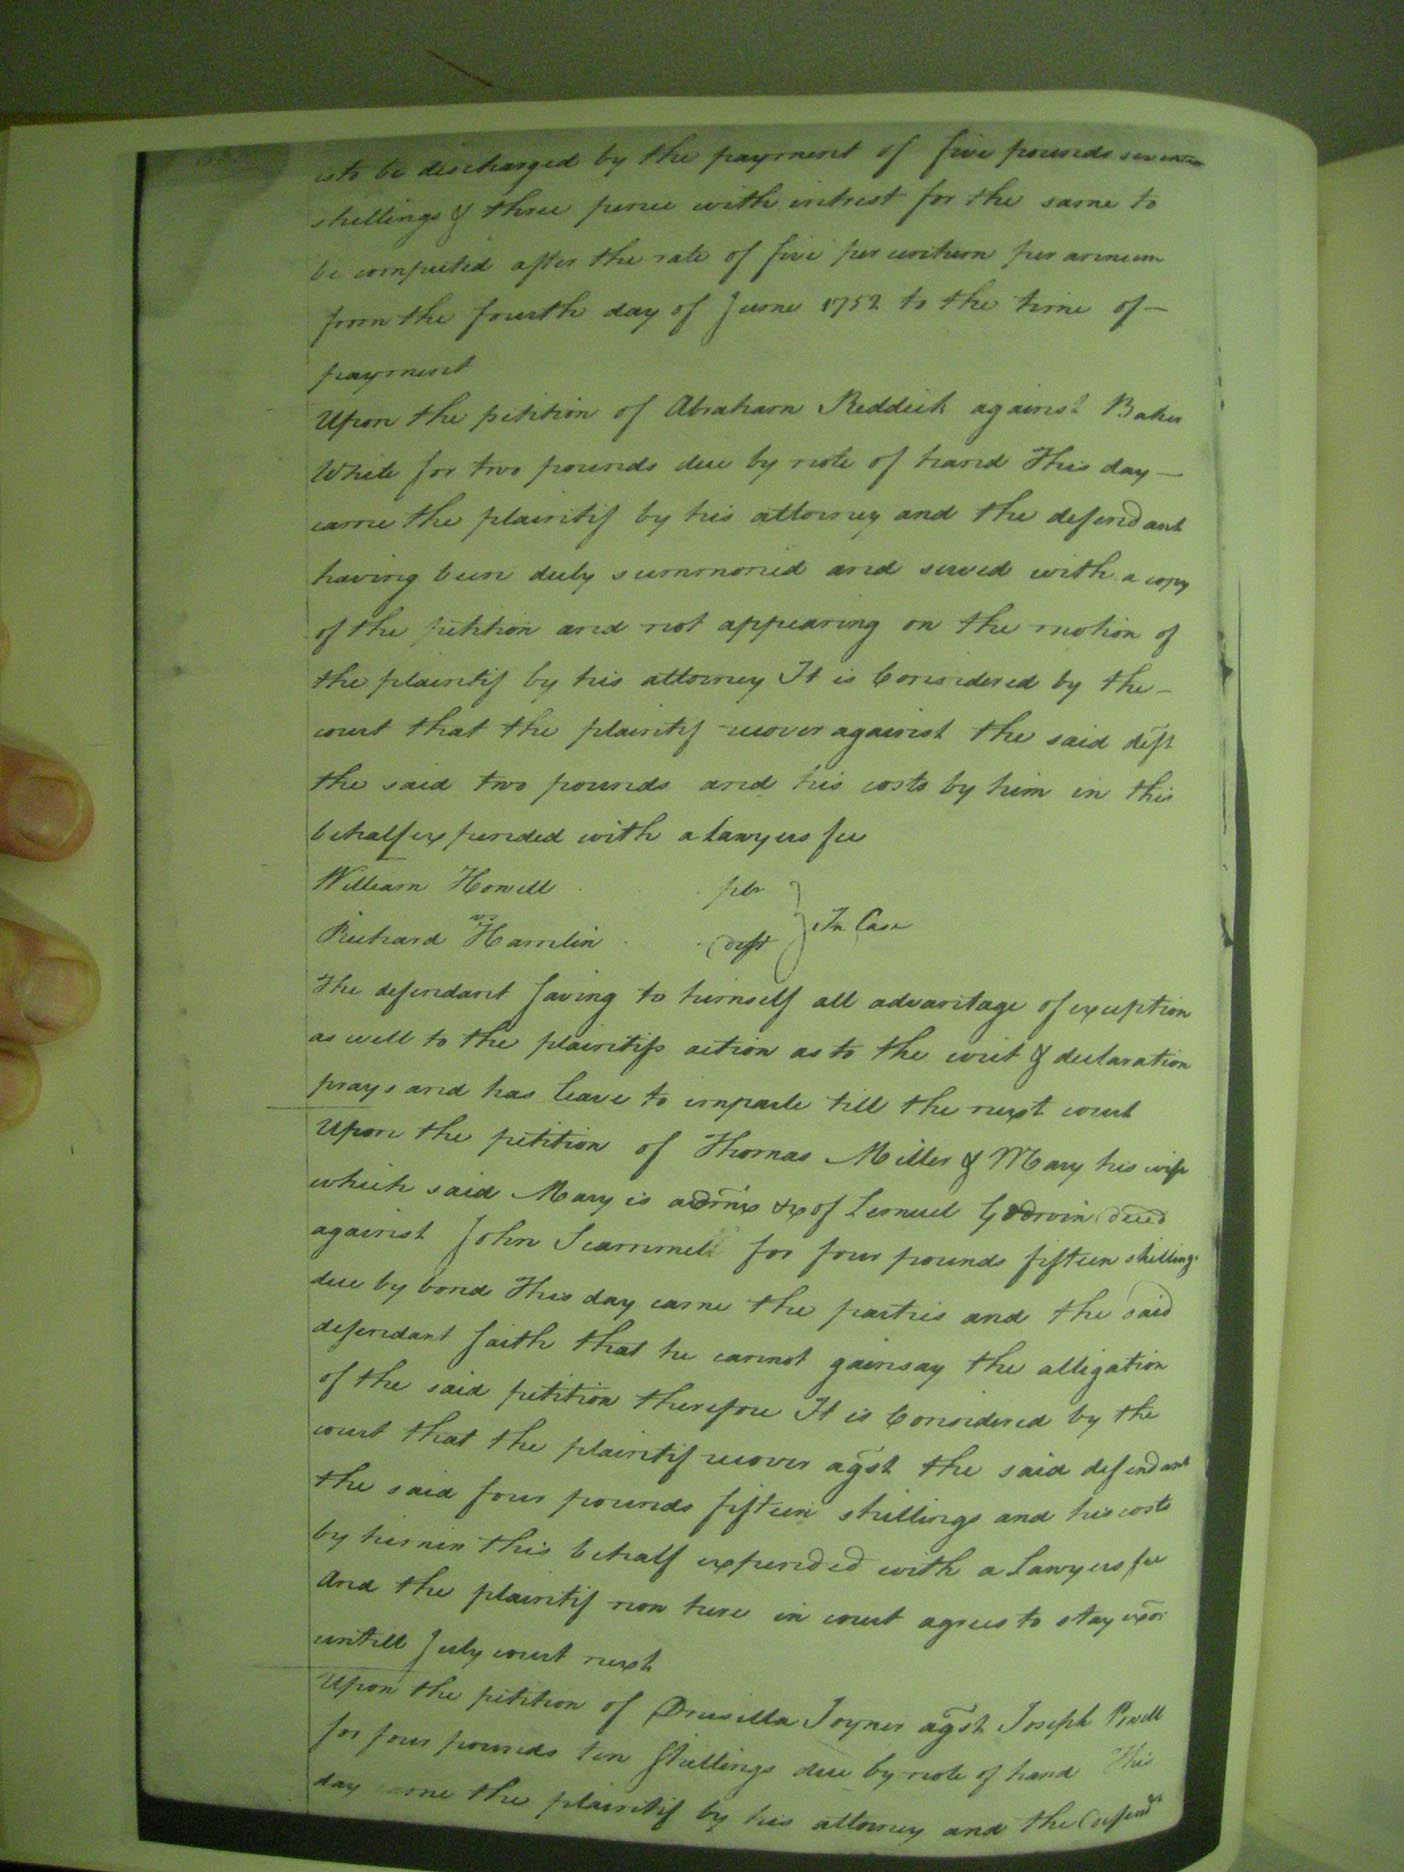 is to be discharged by the payment of five pounds seventeen
shillings & three pence with intrest for the same to
be computed after the rate of five per centum per annum
from the fourth day of June 1752 to the time of —
payment
Upon the petition of Abraham Reddick against Baker
White for two pounds due by note of hand This day —
came the plaintif by his attorney and the defendant
having been duly summoned and served with a copy
of the petition and not appearing on the motion of
the plaintif by his attorney It is Considered by the —
court that the plaintif recover against the said deft
the said two pounds and his costs by him in this
behalf expended with a Lawyers fee
William Howell plr
vs } In Case
Richard Hamlin Deft
The defendant saving to himself all advantage of exception
as well to the plaintifs action as to the writ & declaration
prays and has leave to imparle till the next court
Upon the petition of Thomas Miller & Mary his wife
which said Mary is admx &c of Lemuel Godwin deced
against John Scammell for four pounds fifteen shillings
due by bond This day came the parties and the said
defendant saith that he cannot gainsay the alligation
of the said petition therefore It is Considered by the
court that the plaintif recover agst the said defendant
the said four pounds fifteen shillings and his costs
by him in this behalf expended with a Lawyers fee
And the plaintif now here in court agrees to stay exon
untill July court next
Upon the petition of Drusilla Joyner agst Joseph Powell
for four pounds ten shillings due by note of hand This
day came the plaintif by his attorney and the Defendt